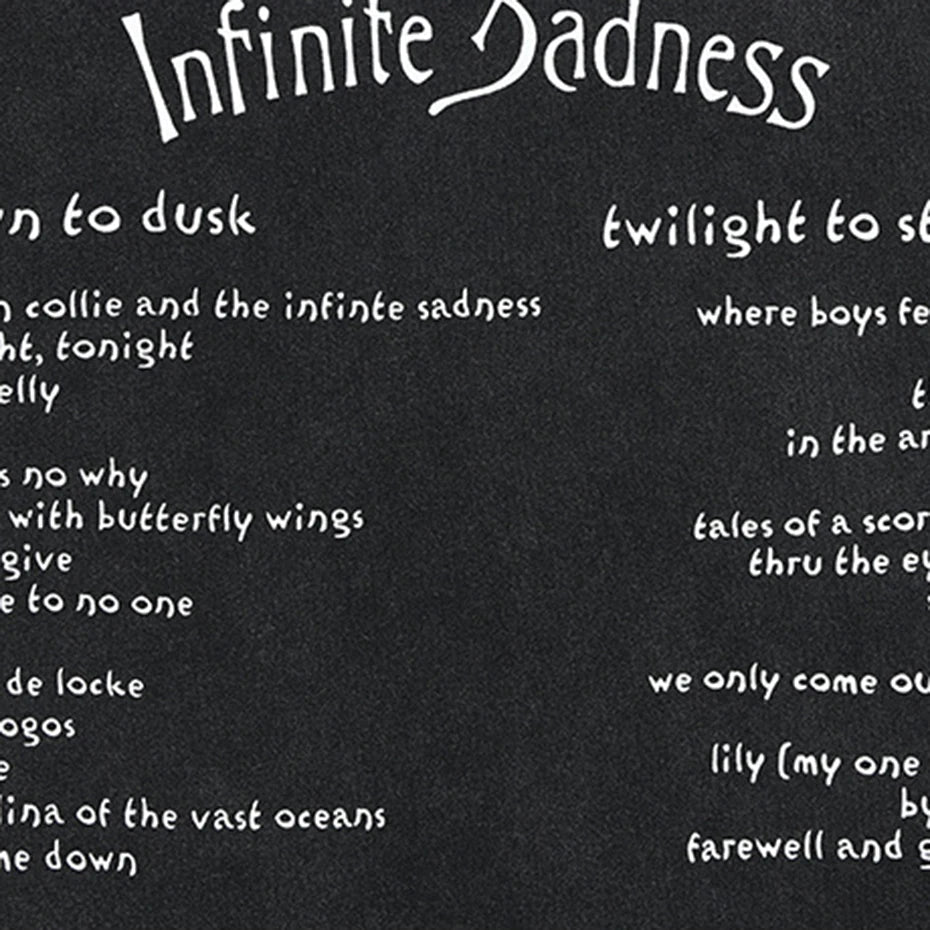 Infinite Sadness
to dusk
twilight to
collie and the infinte sadness
tonight
no why
with butterfly wings
give
to no one
de locke
of the vast oceans
down
where boys
in the
tales of a
thru the
we only come
lily (my one
by
farewell and